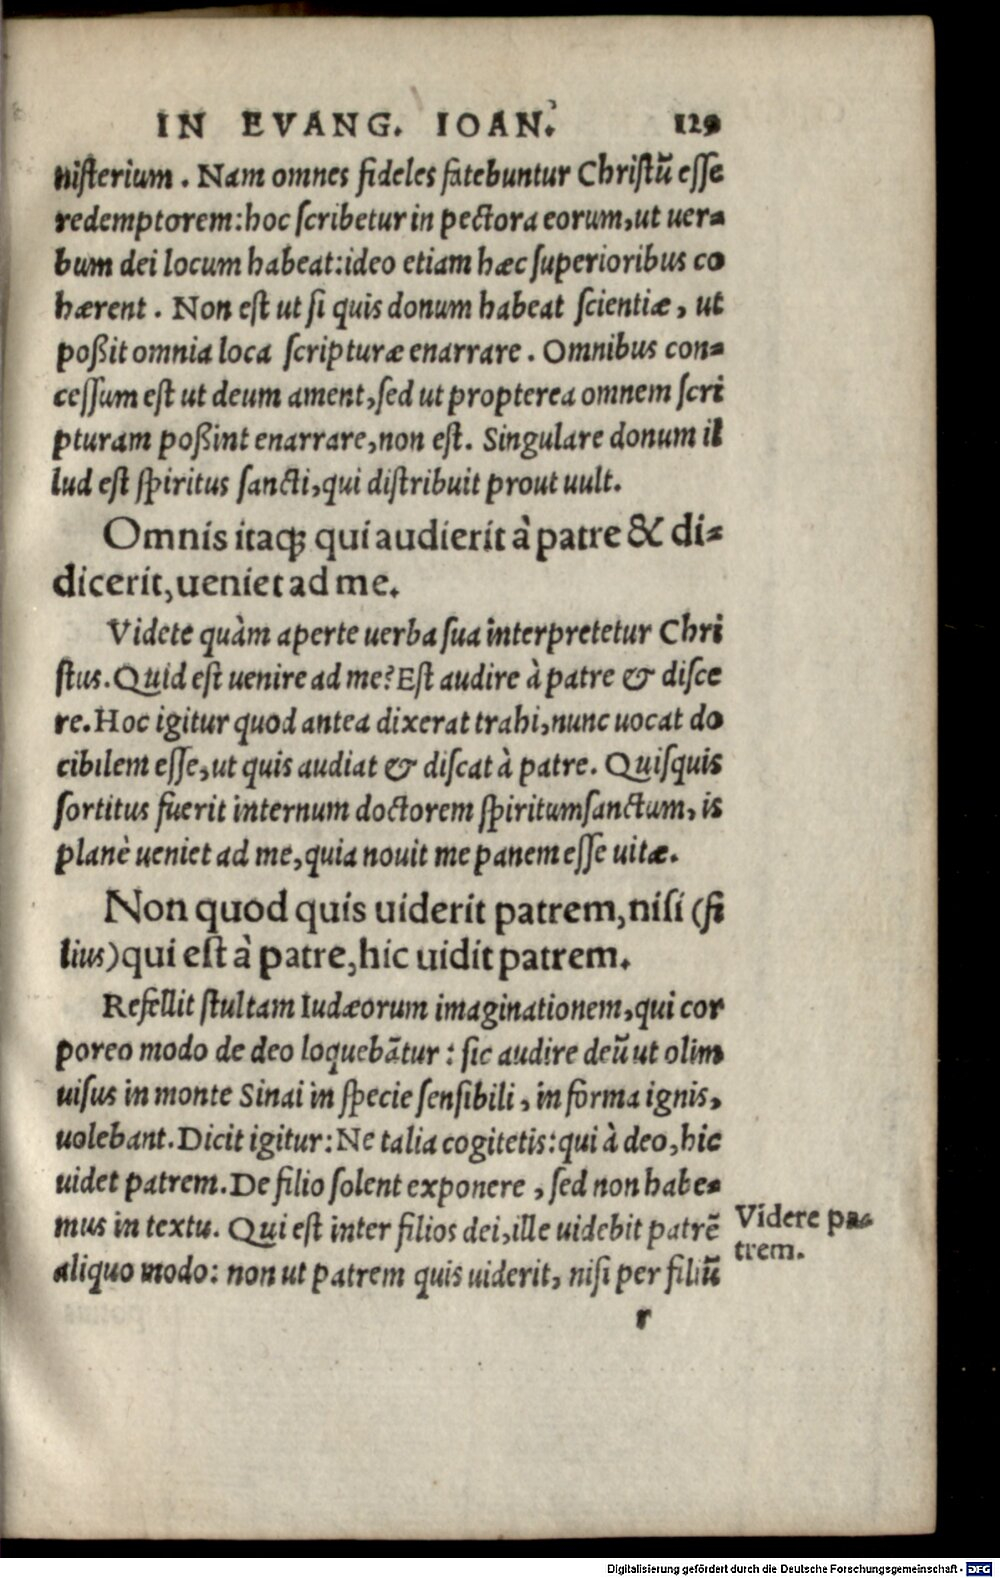 IN EVANG. IOAN. 129
nisterium. Nam omnes fideles fatebuntur Christū esse
redemptorem: hoc scribetur in pectora eorum, ut uer-
bum dei locum habeat: ideo etiam hæc superioribus co
hærent. Non est ut si quis donum habeat scientiæ, ut
poßit omnia loca scripturæ enarrare. Omnibus con-
cessum est ut deum ament, sed ut propterea omnem scri
pturam poßint enarrare, non est. Singulare donum il
lud est spiritus sancti, qui distribuit prout uult.
Omnis itaqꝫ qui audierit à patre & di-
dicerit, ueniet ad me.
Videte quàm aperte uerba sua interpretetur Chri
stus. Quid est uenire ad me? Est audire à patre & disce
re. Hoc igitur quod antea dixerat trahi, nunc uocat do
cibilem esse, ut quis audiat & discat à patre. Quisquis
sortitus fuerit internum doctorem spiritumsanctum, is
planè ueniet ad me, quia nouit me panem esse uitæ.
Non quod quis uiderit patrem, nisi (fi
lius) qui est à patre, hic uidit patrem.
Refellit stultam Iudæorum imaginationem, qui cor
poreo modo de deo loquebātur: sic audire deū ut olim
uisus in monte Sinai in specie sensibili, in forma ignis,
uolebant. Dicit igitur: Ne talia cogitetis: qui à deo, hic
uidet patrem. De filio solent exponere, sed non habe-
mus in textu. Qui est inter filios dei, ille uidebit patrē
aliquo modo: non ut patrem quis uiderit, nisi per filiū
Videre pa-
trem.
r
Digitalisierung gefördert durch die Deutsche Forschungsgemeinschaft - DFG